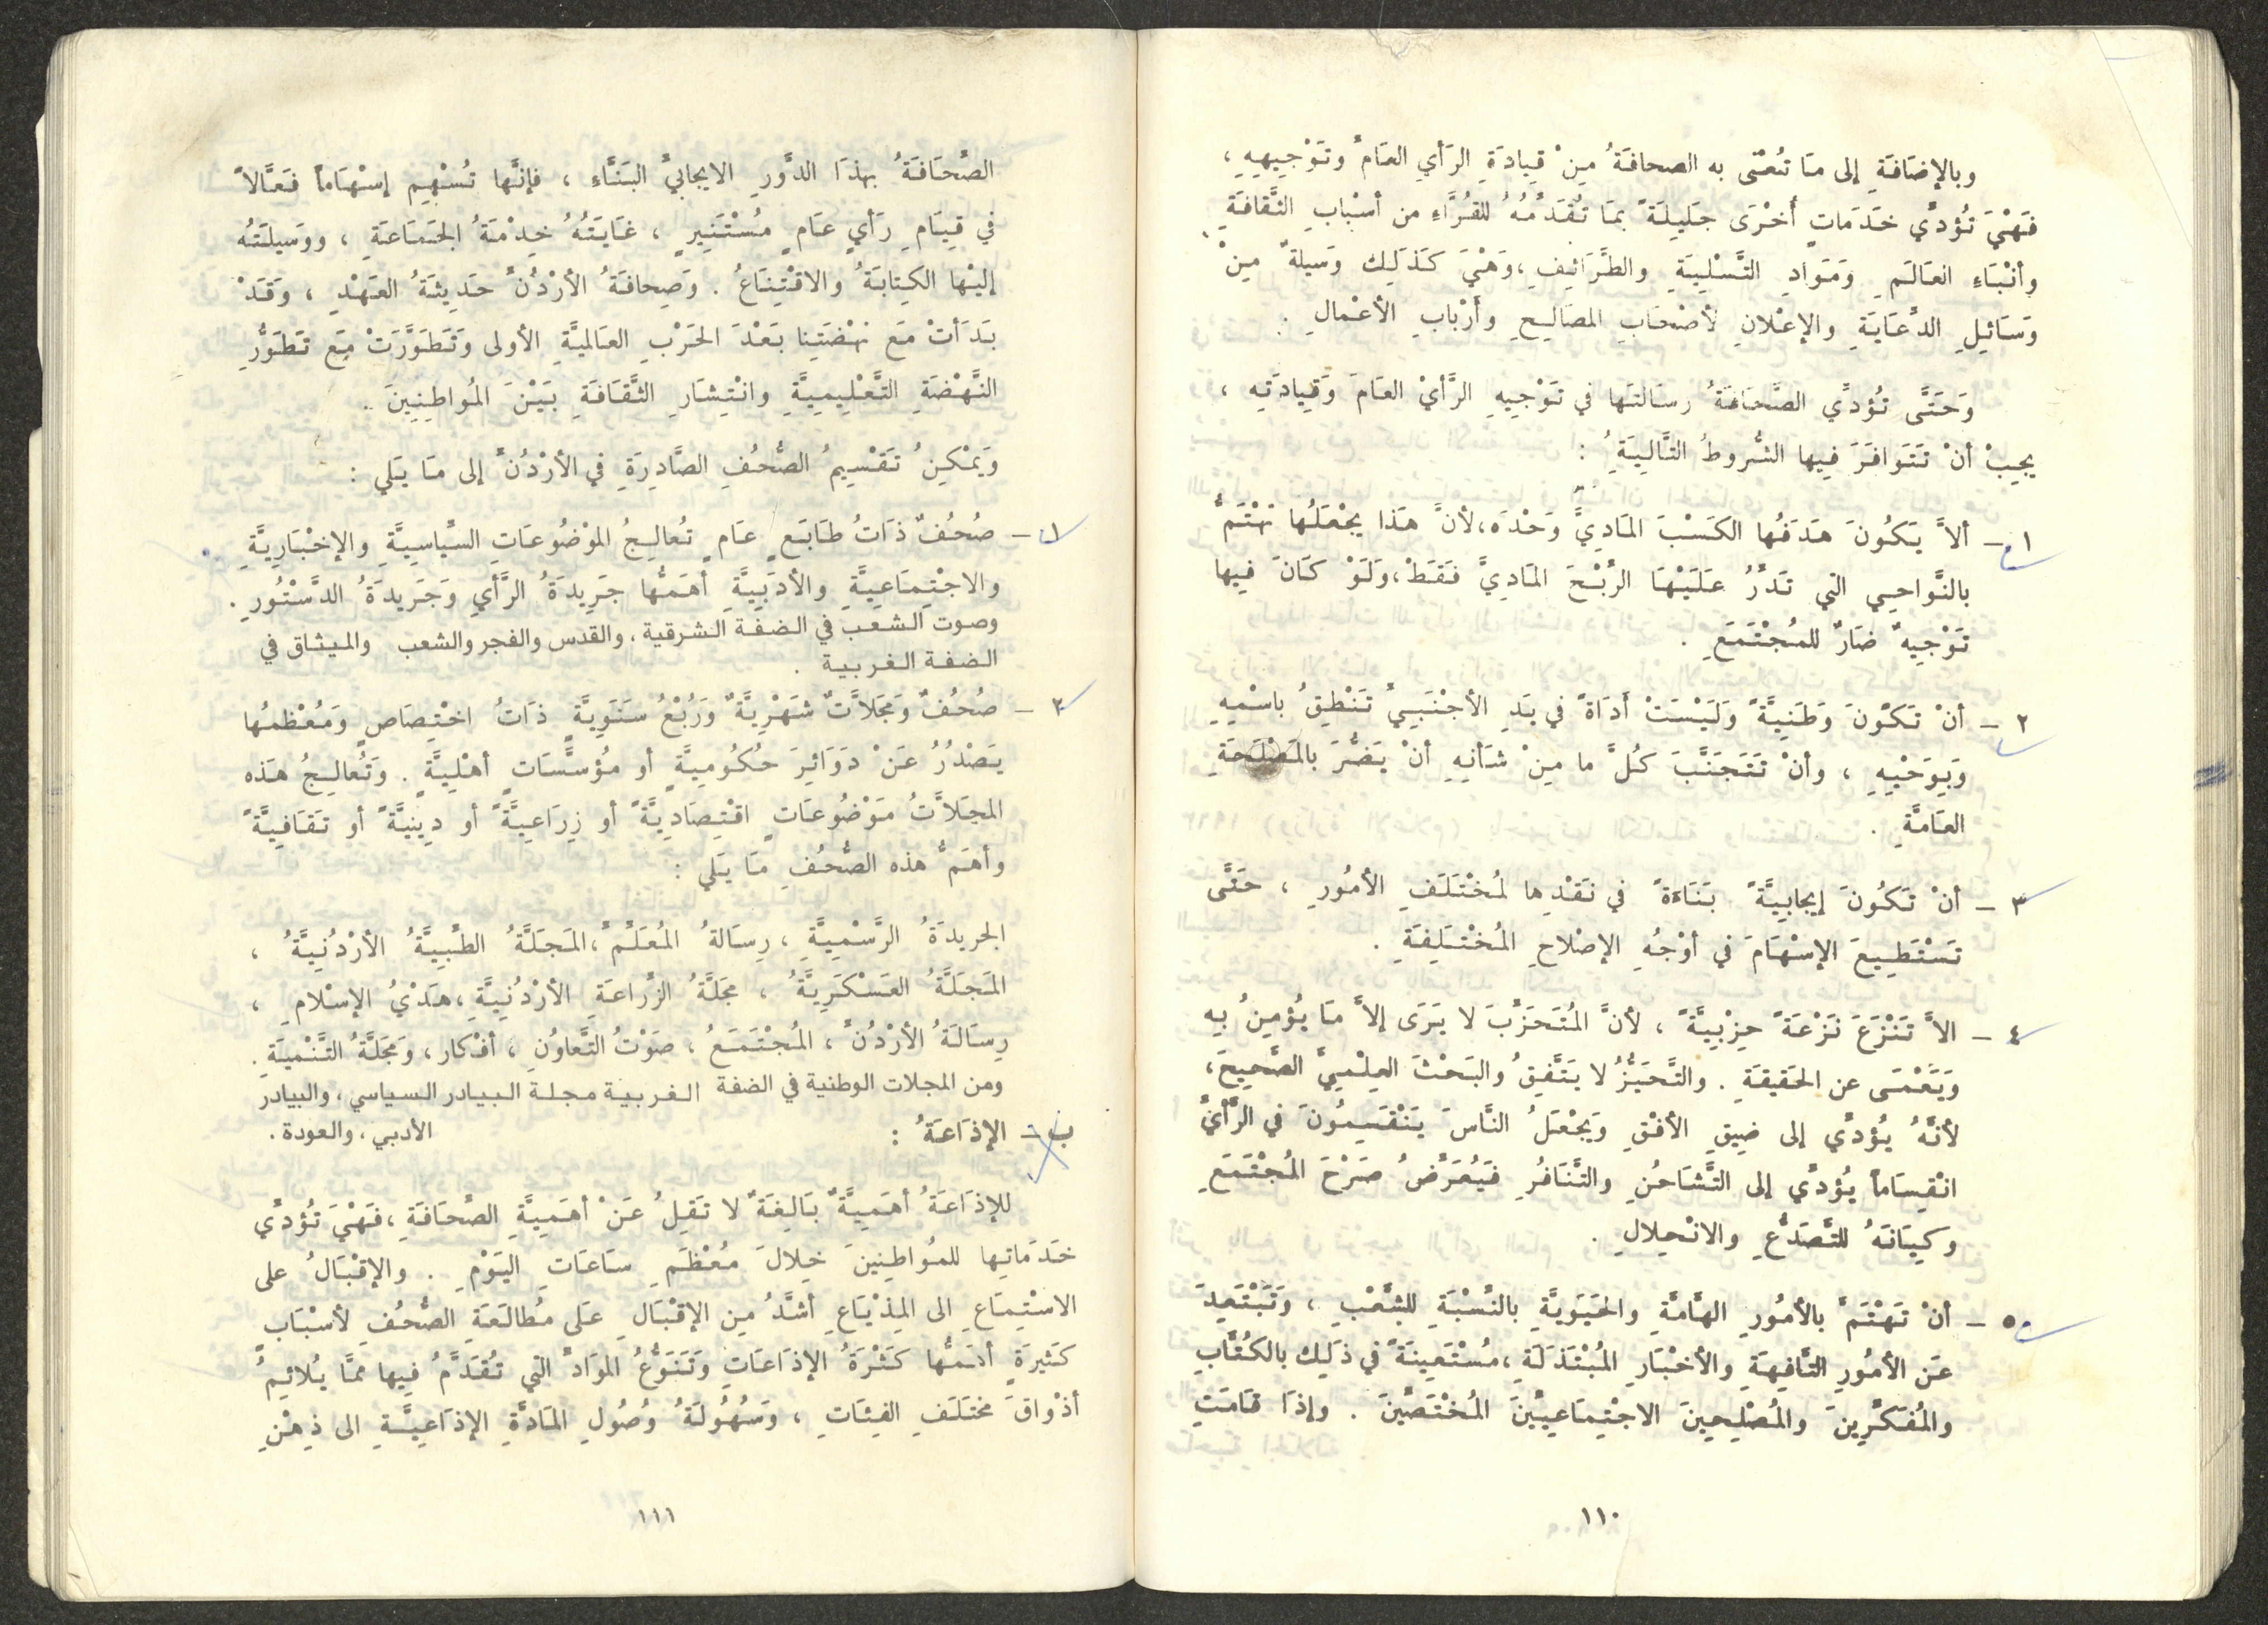 وبالإضَافَةِ إلى مَا تُعْنَى به الصحافَةُ مِنْ قِيادَةِ الرَأيِ العَامِّ وتَوْجِيهِهِ ،
فَهْيَ تُؤدِّي خَدَمَاتٍ أُخرَى جَلِيلَةً بمَا تُقَدِّمُهُ للقُرَّاءِ من أسْبابِ الثَّقافَةِ
وأنْبَاءِ العَالَمِ وَمَوَادِ التَّسْلِيَةِ والطَّرَائِفِ ، وَهْيَ كَذَلِكَ وَسَيلةٌ مِنْ
وَسَائِلِ الدِّعَايَةِ والإعْلانِ لأصْحَابِ المصَالِحِ وأرْبابِ الأعْمالِ .
وَحَتَّى تُؤدِّي الصَّحَافَةُ رسَالتَها في تَوْجِيهِ الرَّأيْ العَامَ وَقِيادَتِه ،
يجِبْ أنْ تَتَوافَرَ فيها الشُّروطُ التَّالِيَةُ :
١ – ألاَّ يَكُونَ هَدَفُها الكَسْبَ المَادِيَّ وَحْدَه ، لأنَّ هَذا يجْعَلُها تَهْتَمُّ
بالنَّواحِي التي تَدُرُّ عَلَيْهَا الرِّبْحَ المَادِيَّ فَقَطْ ، وَلَوْ كَانَ فيها
تَوْجِيهٌ ضَارٌ للمُجْتَمَعِ .
٢ – أنْ تَكُونَ وَطَنِيَّةً وَلَيْسَتْ أدَاةً في يَدِ الأجْنَبِيِّ تَنْطِقُ باسْمِهِ
وَبِوَحْيِهِ ، وأنْ تَتَجَنَّبَ كُلَّ ما مِنْ شَأنِهِ أنْ يَضُرَّ بالمَصْلَحَةِ
العَامَّةِ .
٣ – أنْ تَكُونَ إيجابِيَّةً بَنَاءَةً في نَقْدِها لمُخْتَلَفِ الأمُورِ ، حَتَّى
تَسْتَطِيعَ الإسْهَامَ في أوْجُهِ الإصْلاحِ المُخْتَلِفَةِ .
٤ – الاَّ تَنْزَعَ نَزْعَةً حِزْبِيَّةً ، لأنَّ المُتَحَزِّبَ لا يَرَى إلاَّ مَا يُؤمِنُ بِه
وَيَعْمَى عن الحَقيقَةِ . والتَّحَيُّزُ لا يَتَّفِقُ والبَحْثَ العِلْمِيَّ الصَّحِيحَ ،
لأنَّهُ يُؤدِّي إلى ضِيقِ الأفْقِ وَيَجْعَلُ النَّاسَ يَنْقَسِمُونَ في الرَّأيِ
انْقِسَاماً يُؤدِّي إلى التَّشَاحُنِ والتَّنَافُرِ فَيُعَرِّضُ صَرْحَ المُجْتَمَعِ
وَكِيَانَهُ للتَّصَدُّعِ والانْحِلالِ .
٥ – أنْ تَهْتَمَّ بالأمُورِ الهَّامَّةِ والحَيَوِيَّةِ بالنِّسْبَةِ للشَّعْبِ ، وَتَبْتَعِدَ
عَن الأمُورِ التَّافِهَةِ والأخْبَارِ المُبْتَذَلَةِ ، مُسْتَعِينَةً في ذَلِكَ بالكُتَّابِ
والمُفَكِّرِينَ والمُصْلِحِينَ الاجْتِمَاعِيِّينَ المُخْتَصِّينَ . وإذَا قَامَتِ
١١٠
الصِّحَافَةُ بهذَا الدَّوْرِ الايجابيِّ البَنَّاءِ ، فإنَّها تُسْهِم إسْهَاماً فَعَّالاً
في قِيَامِ رَأيٍ عَامٍ مُسْتَنِيرٍ ، غَايَتُهُ خِدْمَةُ الجَمَاعَةِ ، ووَسِيلَتُه
إليْها الكِتابَةُ والاقْتِنَاعُ . وَصِحافَةُ الأرْدُنِّ حَدِيثَةُ العَهْدِ ، وَقَدْ
بَدَأتْ مَعَ نهْضَتِنا بَعْدَ الحَرْبِ العَالميَّةِ الأولى وَتَطَوَّرَتْ مَع تَطَوُّرِ
النَّهْضَةِ التَّعْلِيمِيَّةِ وانْتِشَارِ الثَّقَافَةِ بَيْنَ المُواطِنِينَ .
وَيمْكِنُ تَقْسِيمُ الصُّحُفِ الصَّادِرَةِ في الأرْدُنِّ إلى مَا يَلي :
١ – صُحُفٌ ذَاتُ طَابَعٍ عَامٍ تُعالِجُ الموْضُوعَاتِ السِّياسِيَّةِ والإخْبَارِيَّةِ
والاجْتِمَاعِيَّةِ والأدَبِيَّةِ أهَمُّها جَرِيدَةُ الرَّأي وَجَرِيدَةُ الدَّسْتُورِ .
وصوت الشعب في الضفة الشرقية ، والقدس والفجر والشعب والميثاق في
الضفة الغربية .
٢ – صُحُفٌ وَمَجَلاَّتٌ شَهْرِيَّةٌ وَرُبْعُ سَنَوِيَّةٍ ذَاتُ اخْتِصَاصٍ وَمُعْظمُها
يَصْدُرُ عَنْ دَوَائِرَ حُكُومِيَةٍ أو مُؤسَّسَاتٍ أهْلِيَّةٍ . وَتُعالِجُ هَذه
المجَلاَّتُ مَوْضُوعَاتٍ اقْتِصَادِيَّةً أو زِرَاعِيَّةً أو دِينِيَّةً أو ثقَافِيَّةً
وأهَمُّ هذه الصُّحُفِ مَا يَلي :
الجريدَةُ الرَّسْمِيَّةِ ، رِسَالةُ المُعَلِّمِ ، المَجَلَّةُ الطِّبِيَّةُ الأرْدُنِيَّةُ ،
المَجَلَّةُ العَسْكَرِيَّةُ ، مجَلَّةُ الزِّراعَةِ الأرْدُنِيَّةِ ، هَدْيُ الإسْلامِ ،
رِسَالَةُ الأرْدُنِّ ، المُجْتَمَعُ ، صَوْتُ التَّعاوُنِ ، أفْكار ، وَمجَلَّةُ التَّنْمِيَةِ .
ومن المجلات الوطنية في الضفة الغربية مجلة البيادر السياسي ، والبيادر
الأدبي ، والعودة .
ب – الإذَاعَةُ :
للإذَاعَةُ أهَمِيَّةٌ بَالِغَةٌ لا تَقِلُ عَنْ أهَمِيَةِ الصِّحَافَةِ ، فَهْيَ تُؤدِّي
خَدَمَاتِها للمُواطِنِينَ خِلالَ مُعْظَمِ سَاعَاتِ اليَوْمِ . والإقْبَالُ على
الاسْتِمَاعِ الى المِذْيَاعِ أشَدُّ مِن الإقْبَالِ عَلى مُطالَعَةِ الصُّحُفِ لأسْبَابٍ
كَثيرَةٍ أهَمُّها كَثْرَةُ الإذَاعَاتِ وَتَنَوُّعُ الموَادِّ التي تُقَدَّمُ فِيها ممَّا يُلائِمُ
أذْواقَ مختَلَفِ الفِئَاتِ ، وَسُهُولَةُ وُصُولِ المَادَّةِ الإذَاعِيَّةِ الى ذِهْنِ
١١١